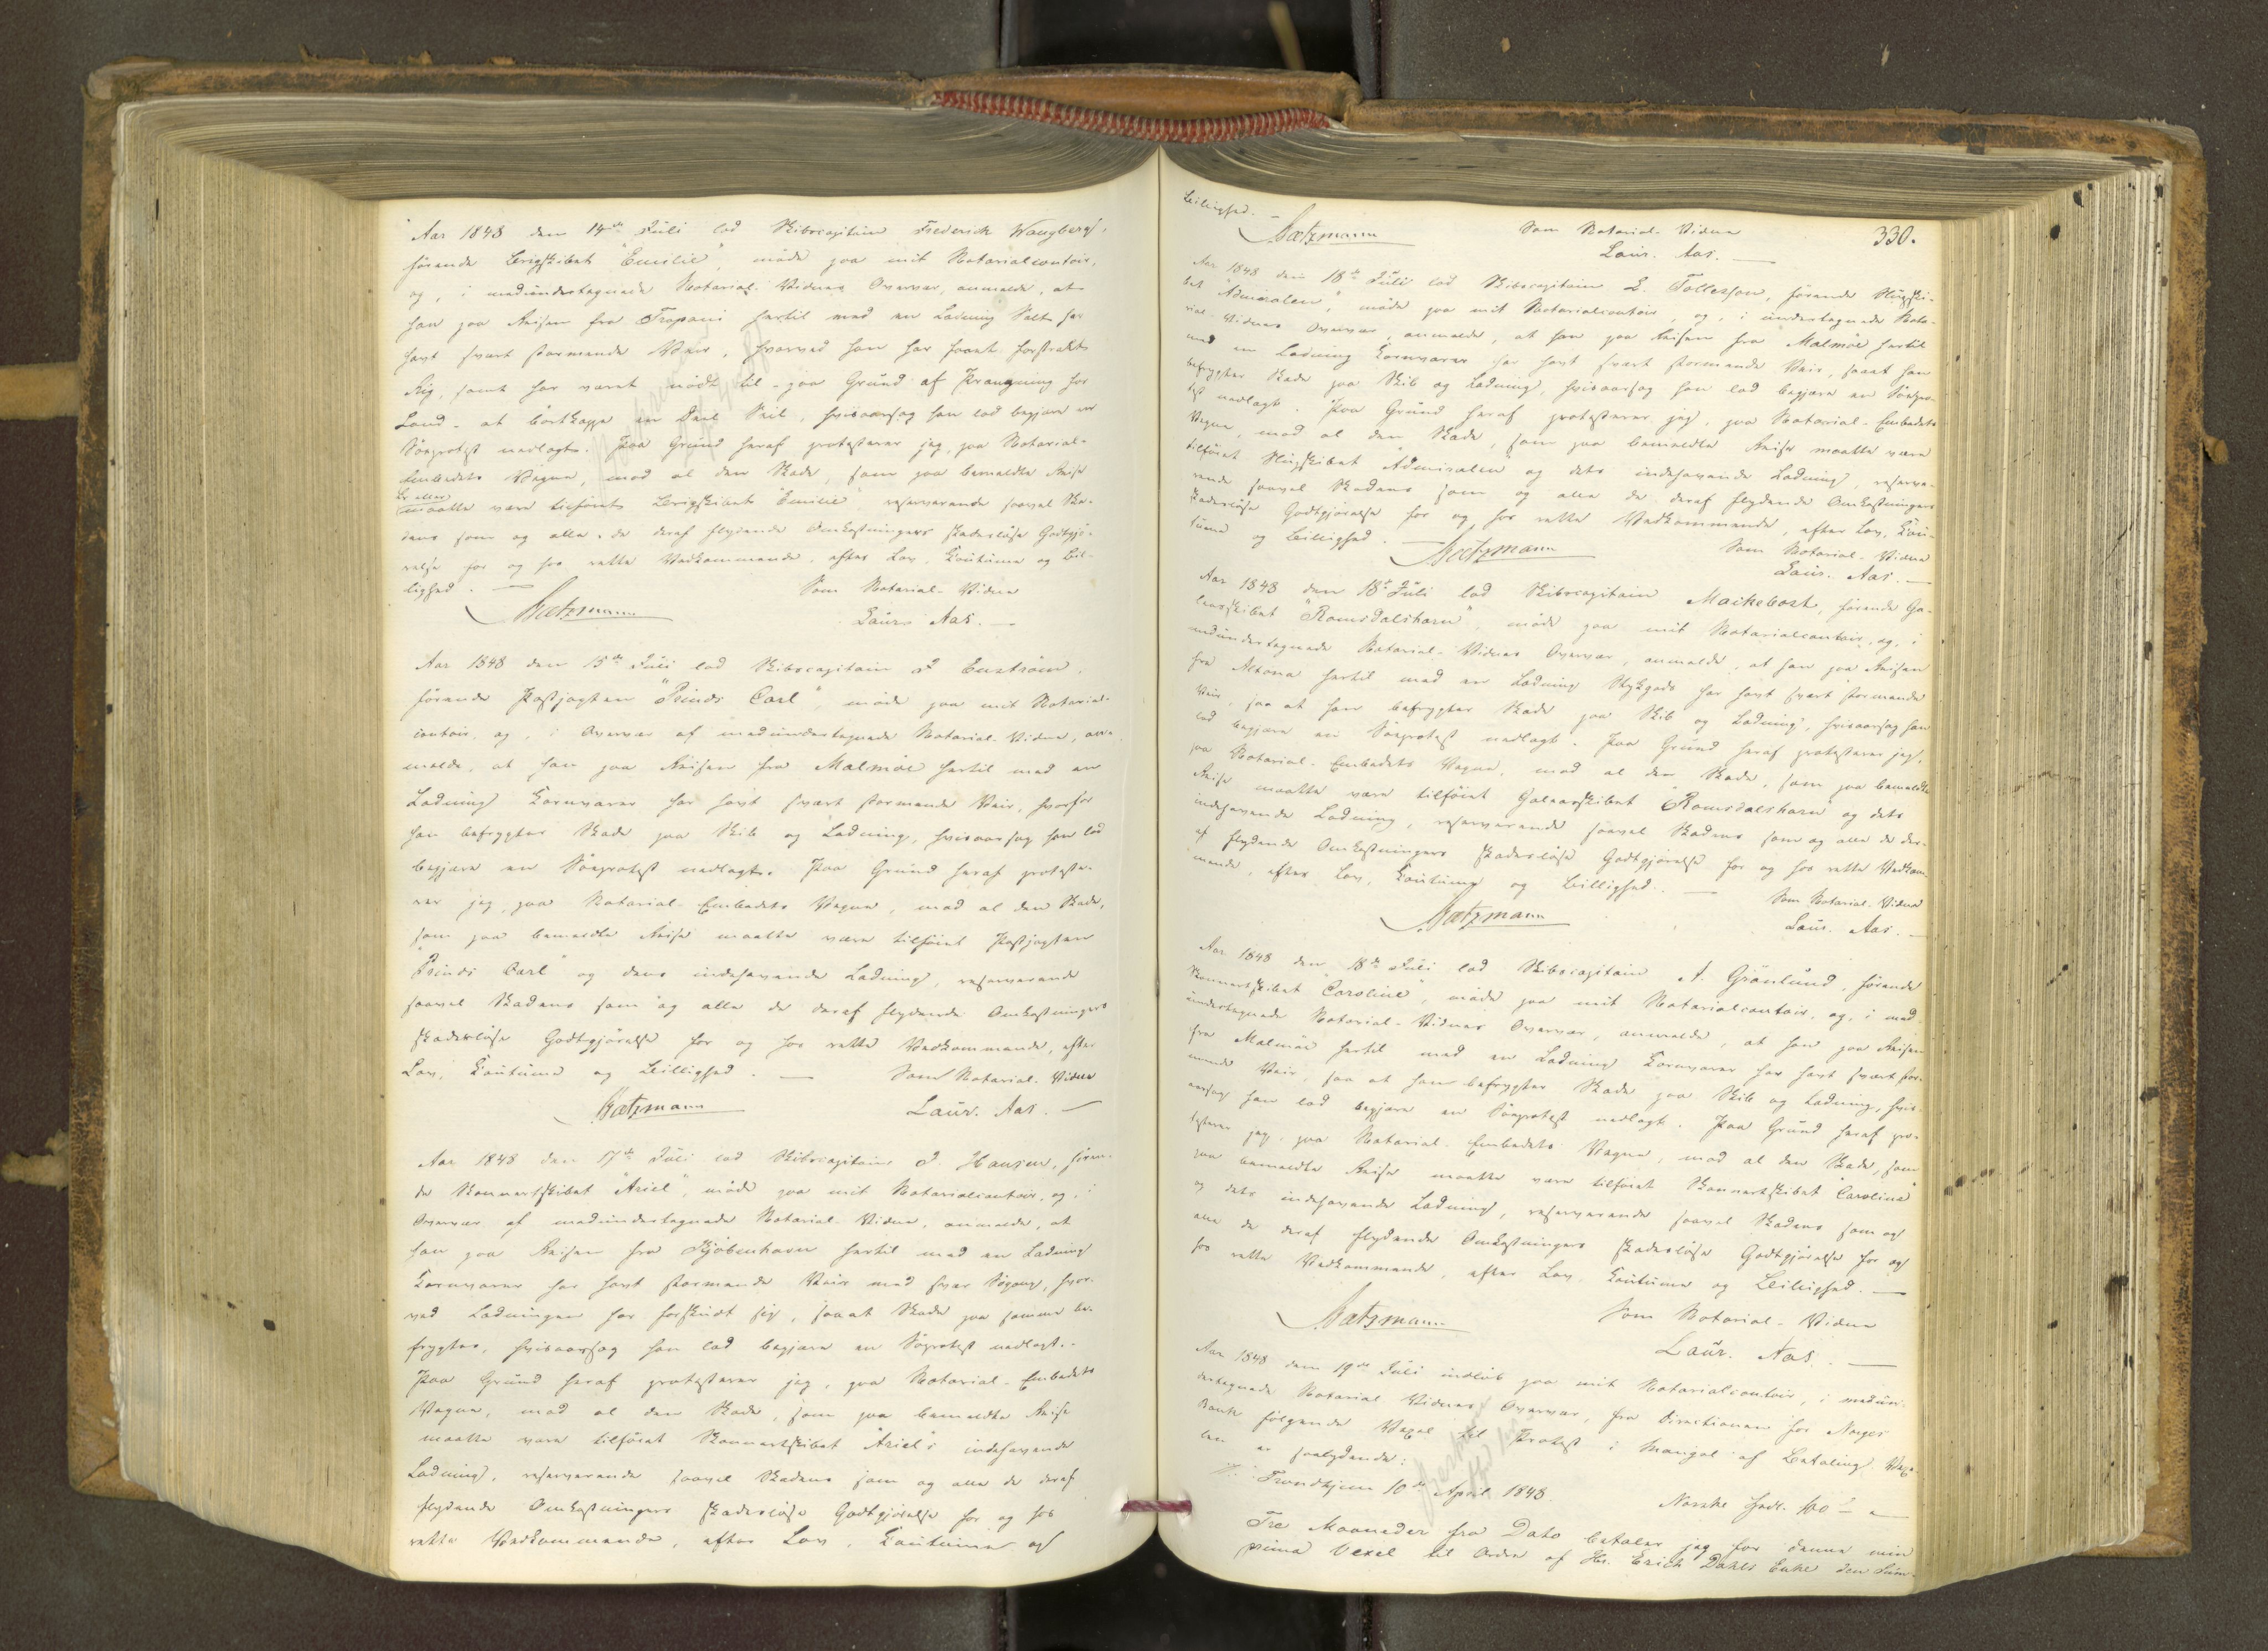 Aar 1848 den 14de Juli lod Skibscapitain Frederick Wangberg,
förende Brigskibet "Emilie", möde paa mit Notarialcontoir,
og, i medundertegnede Notarial-Vidnes Overvær, anmelde, at
han paa Reisen fra Trapani hertil med en Ladning Salt har
havt svært stormende Veir, hvorved han har faaet forstrakt
Rig, samt har været nödt til - paa Grund af Prangning for
Land - at bortkappe en Deel Seil, hvisaarsag han lod begjære en
Söeprotest nedlagt. Paa Grund heraf protesterer jeg, paa Notarial-
Embedets Vegne, mod al den Skade, som paa bemeldte Reise
er eller
maatte være tilföiet Brigskibet "Emilie", reserverende saavel Ska-
dens som og alle de deraf flydende Omkostningers skadeslöse Godtgjö-
relse for og hos rette Vedkommende, efter Lov, Coutume og Bil-
lighed. —
Som Notarial-Vidne
Baetzmann
Laur. Aas. —
Aar 1848 den 15de Juli lod Skibscapitain P Enström,
förende Postjagten "Prinds Carl", möde paa mit Notarial-
contoir, og, i Overvær af medundertegnede Notarial-Vidne, an-
melde, at han paa Reisen fra Malmöe hertil med en
Ladning Kornvarer har havt svært stormende Veir, hvorfor
han befrygter Skade paa Skib og Ladning, hvisaarsag han lod
begjære en Söeprotest nedlagt. Paa Grund heraf proteste-
rer jeg, paa Notarial-Embedets Vegne, mod al den Skade,
som paa bemeldte Reise maatte være tilföiet Postjagten
"Prinds Carl" og dens indehavende Ladning, reserverende
saavel Skadens som og alle de deraf flydende Omkostningers
skadeslöse Godtgjörelse for og hos rette Vedkommende, efter
Lov, Coutume og Billighed. — Som Notarial-Vidne
Baetzmann Laur. Aas. —
Aar 1848 den 17de Juli lod Skibscapitain P. Hansen, fören-
de Skonnertskibet "Ariel", möde paa mit Notarialcontoir, og, i
Overvær af medundertegnede Notarial-Vidne, anmelde, at
han paa Reisen fra Kjöbenhavn hertil med en Ladning
Kornvarer har havt stormende Veir med svær Sögang, hvor-
ved Ladningen har forskudt sig, saaat Skade paa samme be-
frygtes, hvisaarsag han lod begjære en Söprotest nedlagt.
Paa Grund heraf protesterer jeg, paa Notarial-Embedets
Vegne, mod al den Skade, som paa bemeldte Reise
maatte være tilföiet Skonnertskibet "Ariel"s indehavende
Ladning, reserverende saavel Skadens som og alle de deraf
flydende Omkostningers skadeslöse Godtgjörelse for og hos
rette Vedkommende, efter Lov, Coutume og
Billighed. —
Baetzmann
Som Notarial-Vidne
Laur. Aas. —
330.
Aar 1848 den 18de Juli lod Skibscapitain L. Tollefsen, förende Slupski-
bet "Admiralen", möde paa mit Notarialcontoir, og, i undertegnede Nota-
rial-Vidnes Overvær, anmelde, at han paa Reisen fra Malmöe hertil
med en Ladning Kornvarer har havt svært stormende Veir, saaat han
befrygter Skade paa Skib og Ladning, hvisaarsag han lod begjære en Söepro-
test nedlagt. Paa Grund heraf protesterer jeg, paa Notarial-Embedets
Vegne, mod al den Skade, som paa bemeldte Reise maatte være
tilföiet Slupskibet "Admiralen" og dets indehavende Ladning, reserve-
rende saavel Skadens som og alle de deraf flydende Omkostningers
skadeslöse Godtgjörelse for og hos rette Vedkommende, efter Lov, Cou-
tume og Billighed. —
Baetzmann
Som Notarial-Vidne
Laur. Aas. —
Aar 1848 den 18de Juli lod Skibscapitain Maikebost, förende Ga-
leasskibet "Romsdalshorn", möde paa mit Notarialcontoir, og, i
medundertegnede Notarial-Vidnes Overvær, anmelde, at han paa Reisen
fra Altona hertil med en Ladning Stykgods har havt svært stormende
Veir, saa at han befrygter Skade paa Skib og Ladning, hvisaarsag han
lod begjære en Söeprotest nedlagt. Paa Grund heraf protesterer jeg,
paa Notarial-Embedets Vegne, mod al den Skade, som paa bemeldte
Reise maatte være tilföiet Galeasskibet "Romsdalshorn" og dets
indehavende Ladning, reserverende saavel Skadens som og alle de der-
af flydende Omkostningers skadeslöse Godtgjörelse for og hos rette Vedkom-
mende, efter Lov, Coutume og Billighed. —
Som Notarial-Vidne
Baetzmann
Laur. Aas. —
Aar 1848 den 18de Juli lod Skibscapitain A. Grönlund, förende
Skonnertskibet "Caroline", möde paa mit Notarialcontoir, og, i med-
undertegnede Notarial-Vidnes Overvær, anmelde, at han paa Reisen
fra Malmöe hertil med en Ladning Kornvarer har havt svært stor-
mende Veir, saa at han befrygter Skade paa Skib og Ladning, hvis-
aarsag han lod begjære en Söeprotest nedlagt. Paa Grund heraf pro-
testerer jeg, paa Notarial-Embedets Vegne, mod al den Skade, som
paa bemeldte Reise maatte være tilföiet Skonnertskibet "Caroline"
og dets indehavende Ladning, reserverende saavel Skadens som og
alle de deraf flydende Omkostningers skadeslöse Godtgjörelse for og
hos rette Vedkommende, efter Lov, Coutume og Billighed. —
Baetzmann
Som Notarial-Vidne
Laur. Aas. —
Aar 1848 den 19de Juli indlöb paa mit Notarialcontoir, i medun-
dertegnede Notarial-Vidnes Overvær, fra Directionen for Norges
Bank fölgende Vexel til Protest i Mangel af Betaling. Vex-
len er saalydende:
Trondhjem 10de April 1848. Norske
Tre Maaneder fra Dato betaler jeg for denne min
prima Vexel til Ordre af Hr. Erich Dahls Enke den Sum-